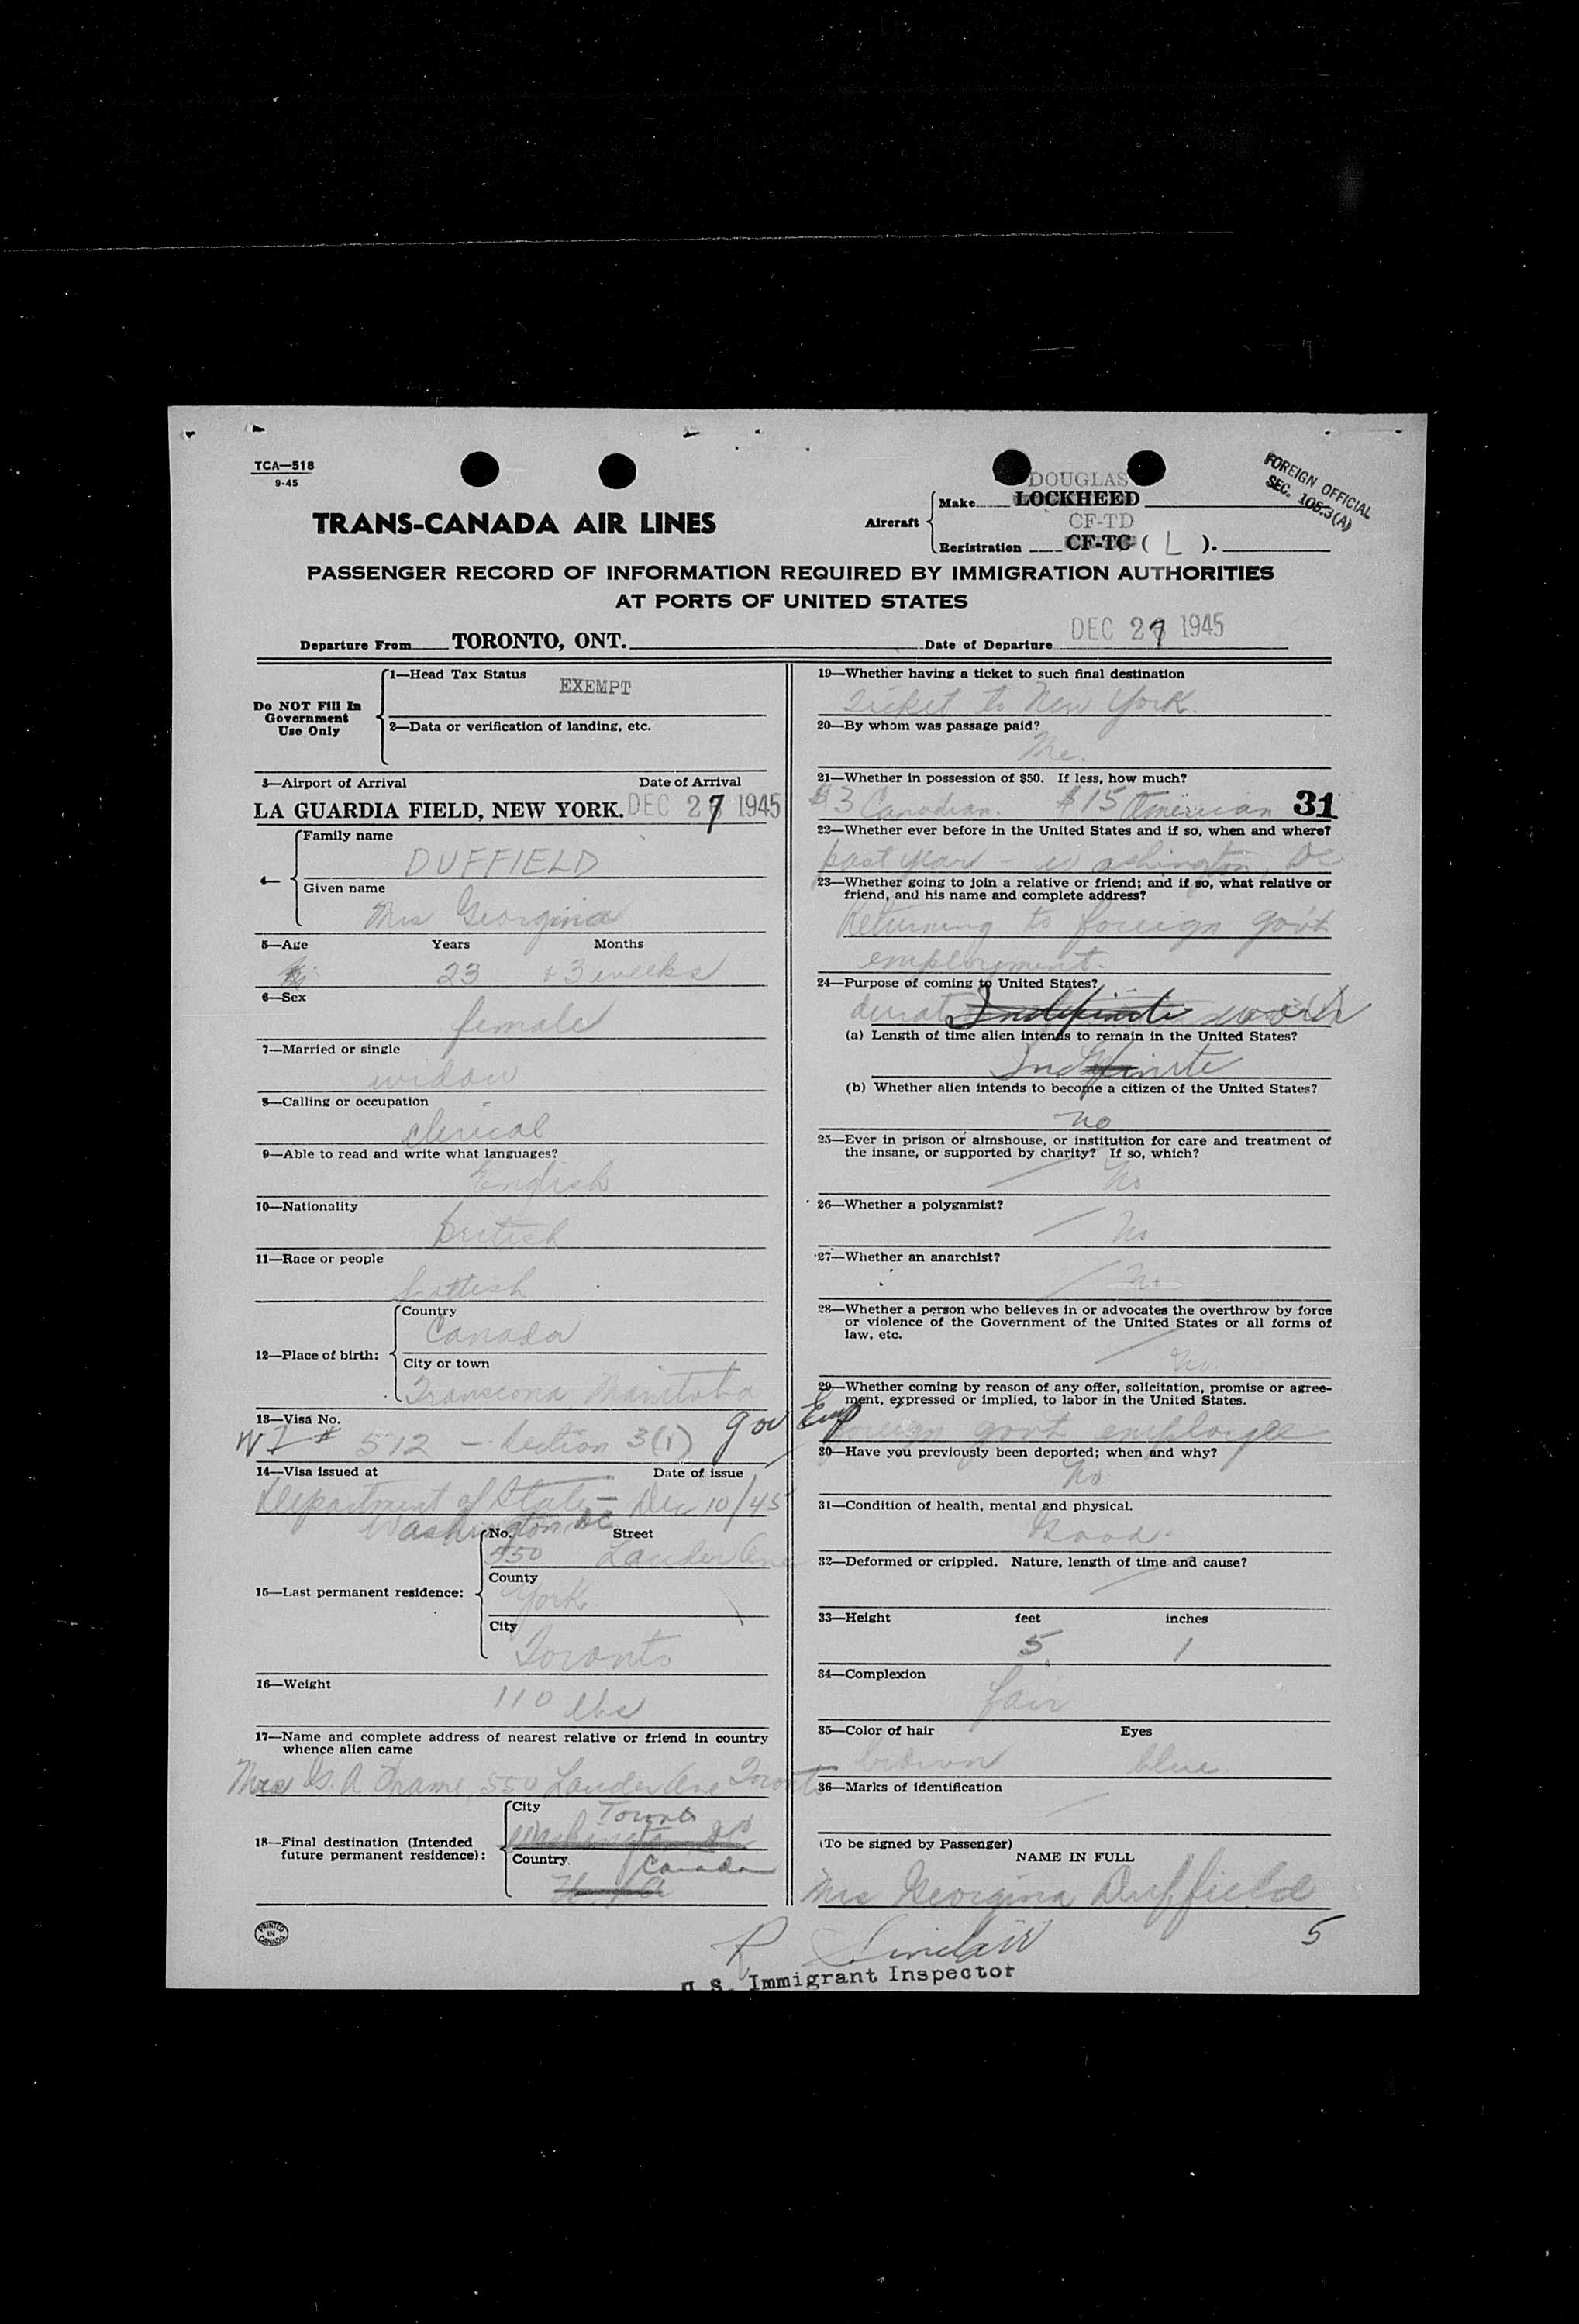 TCA—518
9-45
FOREIGN OFFICIAL
SEC. 105.3(A)
TRANS-CANADA AIR LINES
Aircraft
DOUGLAS
Make LOCKHEED
CF-TD
Registration CF-TC ( L ).
PASSENGER RECORD OF INFORMATION REQUIRED BY IMMIGRATION AUTHORITIES
AT PORTS OF UNITED STATES
Departure From TORONTO, ONT. Date of Departure DEC 27 1945
Do NOT Fill In
Government
Use Only
1—Head Tax Status
EXEMPT
2—Data or verification of landing, etc.
3—Airport of Arrival Date of Arrival
LA GUARDIA FIELD, NEW YORK. DEC 27 1945
4—
Family name
DUFFIELD
Given name
Mrs Georgina
5—Age Years Months
23 + 3 weeks
6—Sex
female
7—Married or single
widow
8—Calling or occupation
clerical
9—Able to read and write what languages?
English
10—Nationality
British
11—Race or people
Scottish
12—Place of birth:
Country
Canada
City or town
Transcona Manitoba
13—Visa No.
# 512 — Section 3(1) gov Emp
14—Visa issued at Date of issue
Department of State — Dec 10/45
Washington, DC
15—Last permanent residence:
No. Street
550 Lauder Ave
County
York
City
Toronto
16—Weight
110 lbs
17—Name and complete address of nearest relative or friend in country
whence alien came
Mrs G. A. 550 Lauder Ave Toronto
18—Final destination (Intended
future permanent residence):
City
Toronto
Washington DC
Country
Canada
19—Whether having a ticket to such final destination
ticket to New York.
20—By whom was passage paid?
Me.
21—Whether in possession of $50. If less, how much?
$3 Canadian. $15 American 31
22—Whether ever before in the United States and if so, when and where?
past year — Washington, DC
23—Whether going to join a relative or friend; and if so, what relative or
friend, and his name and complete address?
Returning to foreign gov't
employment.
24—Purpose of coming to United States?
Indefinite
(a) Length of time alien intends to remain in the United States?
Indefinite
(b) Whether alien intends to become a citizen of the United States?
no
25—Ever in prison or almshouse, or institution for care and treatment of
the insane, or supported by charity? If so, which?
No
26—Whether a polygamist?
No
27—Whether an anarchist?
No
28—Whether a person who believes in or advocates the overthrow by force
or violence of the Government of the United States or all forms of
law, etc.
No.
29—Whether coming by reason of any offer, solicitation, promise or agree-
ment, expressed or implied, to labor in the United States.
foreign gov't employee
30—Have you previously been deported; when and why?
No
31—Condition of health, mental and physical.
Good.
32—Deformed or crippled. Nature, length of time and cause?
33—Height feet inches
5 1
34—Complexion
fair
35—Color of hair Eyes
brown blue
36—Marks of identification
(To be signed by Passenger)
NAME IN FULL
Mrs Georgina Duffield
5
R Sinclair
U.S. Immigrant Inspector
PRINTED
IN
CANADA